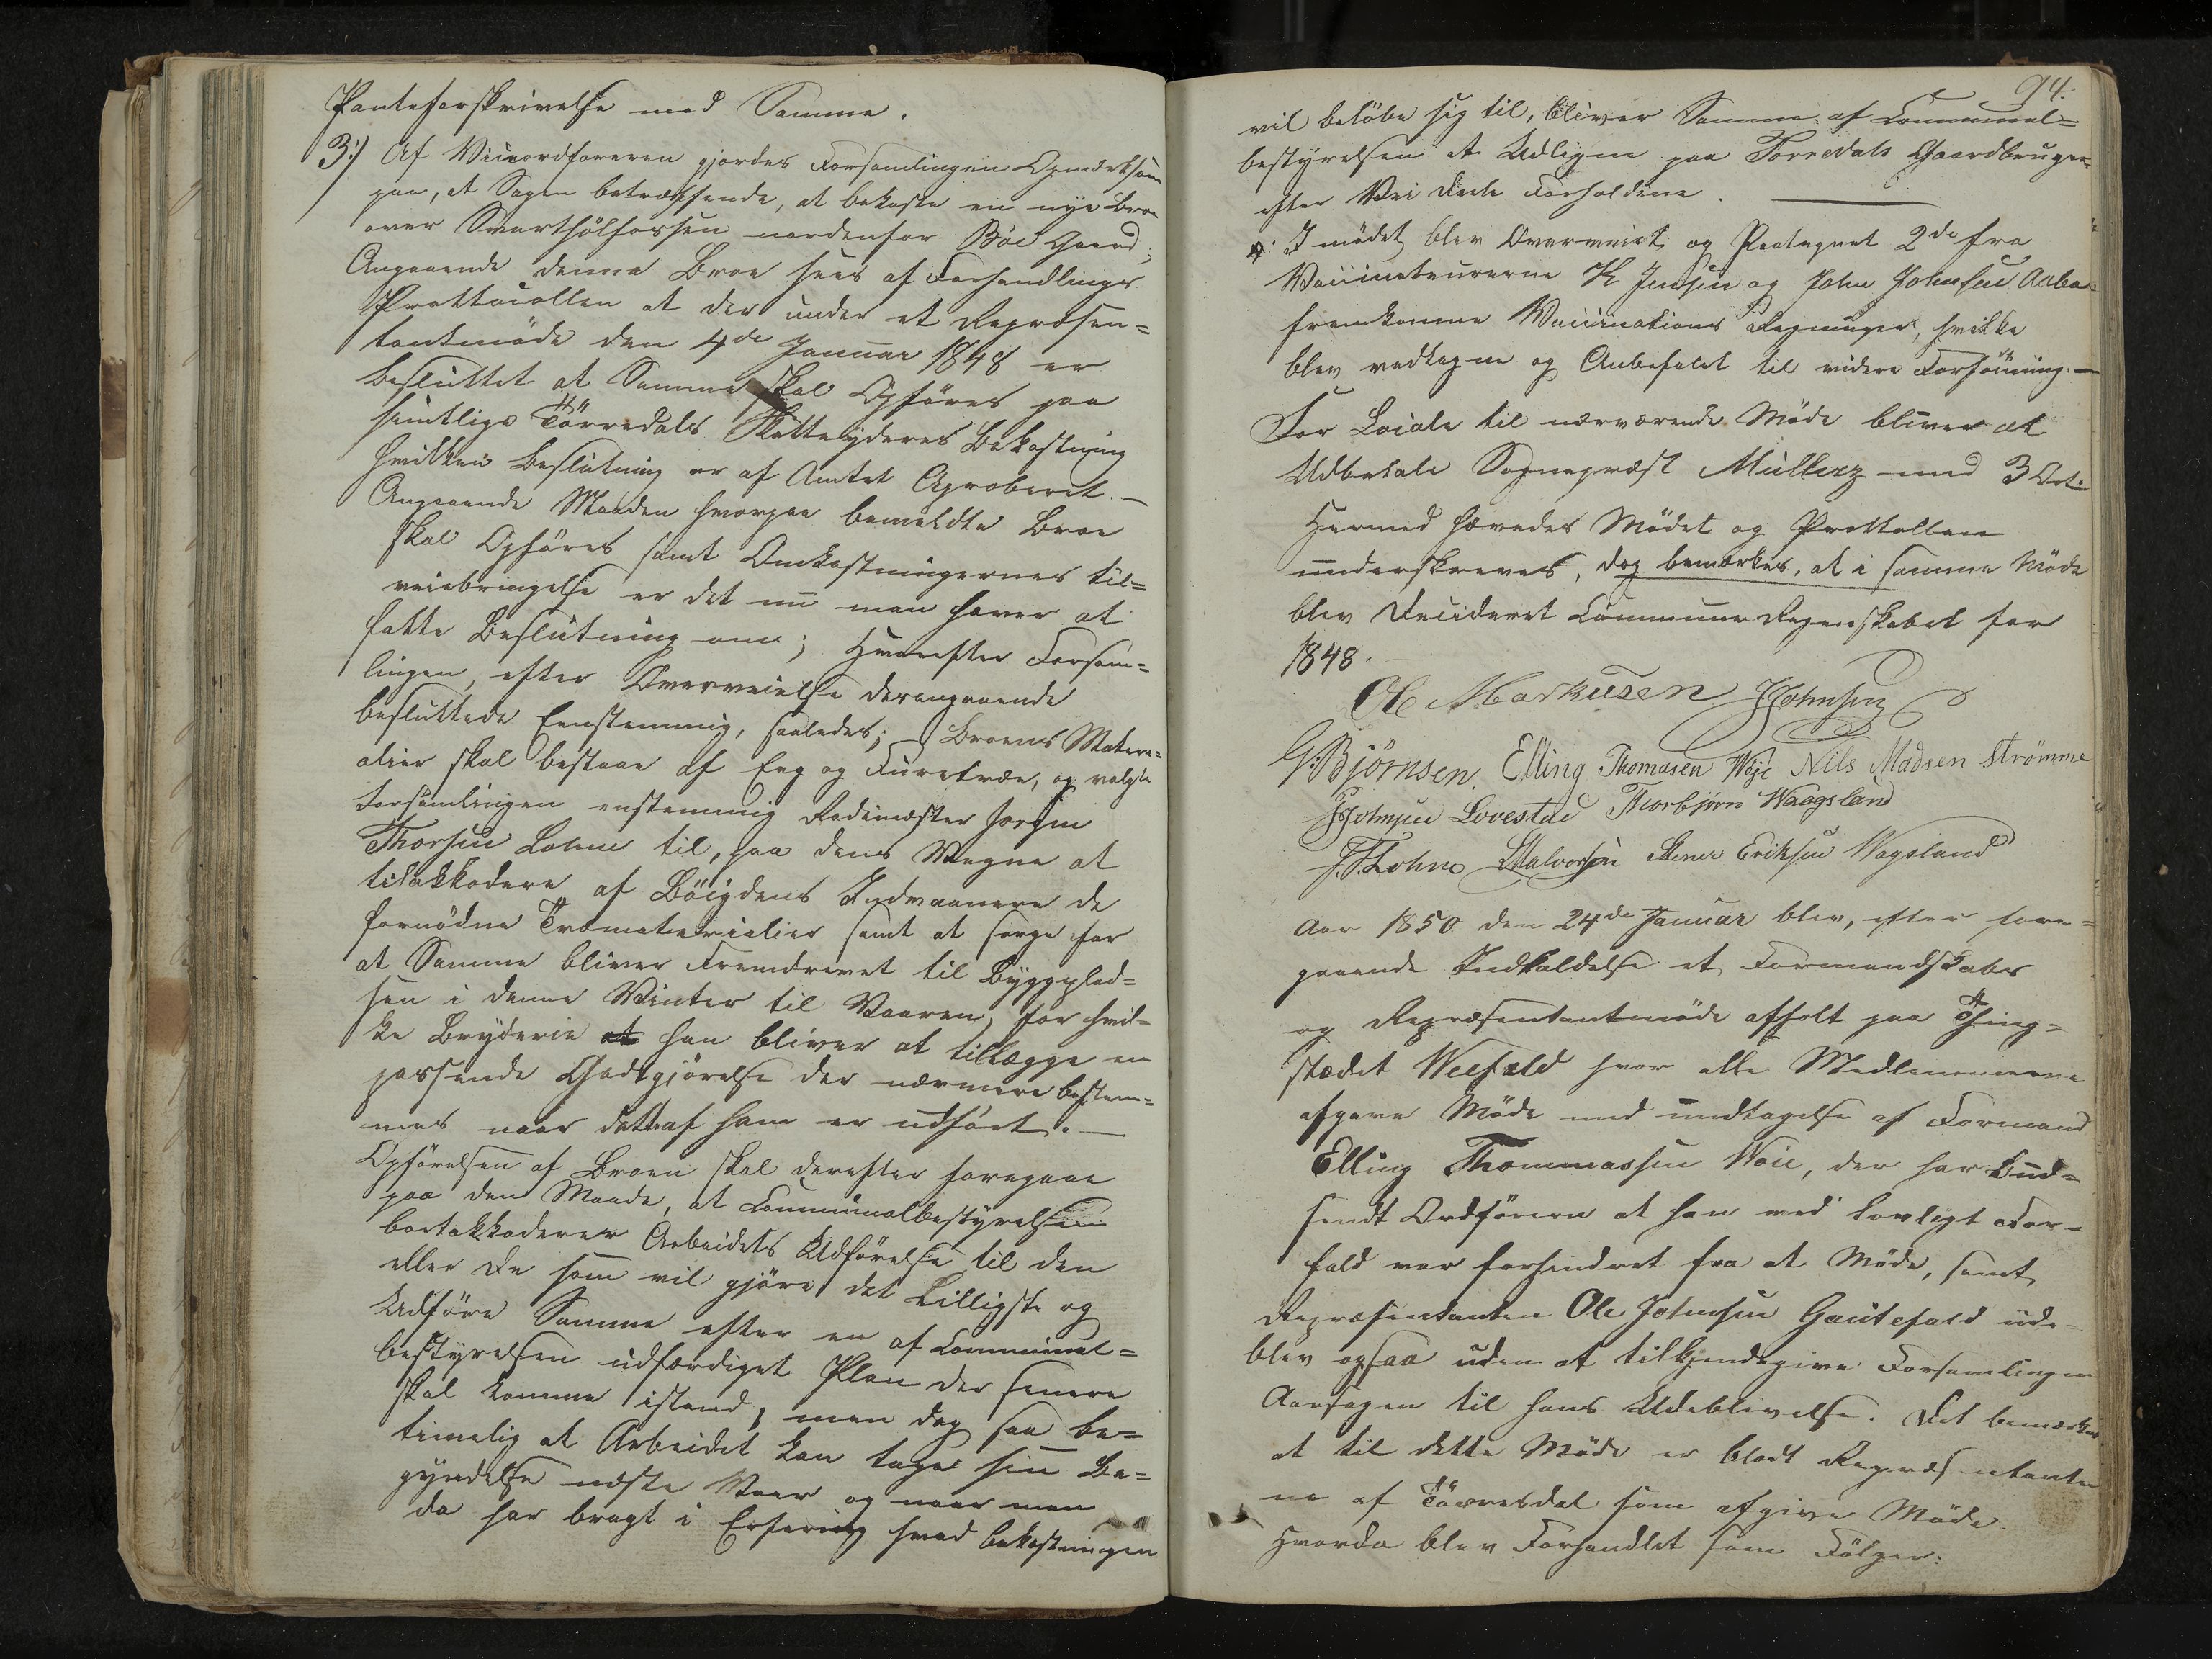 Panteforskrivelse med Samme.
3:) Af Viceordføreren gjordes Forsamlingen Opmerksom
paa, at Sagen betræffende, at bekoste en nye Broe
over Svarthölfossen nordenfor Böe Gaard;
Angaaende denne Broe sees af Forhandlings
Prottocollen at der under et Repræsen=
tantmöde den 4de Januar 1848 er
besluttet at Samme skal Opföres paa
samtlige Törredals Skatteyderes Bekostning
hvilken Beslutning er af Amtet Aproberet.-
Angaaende Maaden hvorpaa bemeldte Broe
skal Opföres samt Omkostningernes til=
veiebringelse er det nu man haver at
fatte Beslutning om; Hvorefter Forsam=
lingen, efter Overveielse derangaaende
besluttede Eenstemmig, saaledes; Broens Materi=
alier skal bestaae af Eeg og Furetræe, og valgte
Forsamlingen enstemmig Rodemester Jörgen
Thorsen Lohne til, paa dens Vegne at
tilakkodere af Böigdens Indvaanere de
fornödne Træmaterialier samt at sörge for
at Samme bliver Fremdrevet til Byggeplad=
sen i denne Vinter til Vaaren, for hvil=
ke Bryderie at han bliver at tillægge en
passende Godtgjörelse der nærmere bestem=
mes naar dette af ham er udfört.-
Opförelsen af Broen skal derefter foregaae
paa den Maade, at Communalbestyrelsen
bortakkoderer Arbeidets Udförelse til den
eller de som vil gjöre det Billigste og
Udföre Samme efter en af Communal=
bestyrelsen udfærdiget Plan der senere
skal komme istand, men dog saa be=
timelig at Arbeidet kan tage sin Be=
gyndelse næste Vaar og naar man
da har bragt i Erfaring hvad bekostningen
94.
vil belöbe sig til, bliver Summen af Communal=
bestyrelsen at Udligne paa Torredals Gaardbrugere
efter Vei Rode Forholdene.
4: I mödet blev Overveiet og Modtaget 2de fra
Vaccinateurerne K Jensen og John Johnsen
fremkomne Vaccinations Regninger, hvilke
blev vedtagne og Anbefalet til videre Forföining.-
For Locale til nærværende Möde bliver at
Udbetale Sognepræst Müllerz med 3 Ort.
Hermed hævedes Mödet og Prottollen
underskreves, dog bemærkes, at i samme Möde
blev Decideret Commune Regnskabet for
1848.
Ole Markusen JJohnsen
G. Bjørnsen. Elling Thomasen Wøje Nils Madsen Strømme
JJohnsen Lovestad Thorbjörn Waagsland
J.T.Lohne Halvorsen Stener Eriksen Vagsland
Aar 1850 den 24de Januar blev, efter fore=
gaaende Indkaldelse et Formandskabs
og Repræsentantmöde afholt paa Thing=
stædet Weefald hvor alle Medlemmerne
afgave Möde med undtagelse af Formand
Elling Thommassen Wöie, der har Bud=
sendt Ordföreren at han ved lovligt For=
fald var forhindret fra at Möde, samt
Repræsentanten Ole Johnsen Gautefald ude=
blev ogsaa uden at tilkjendegive Forsamlingen
Aarsagen til hans Udeblivelse. Det bemærkes
at til dette Möde er blodt Repræsentanter=
ne af Törresdal som afgive Möde.
Hvorda blev Forhandlet som Fölger: